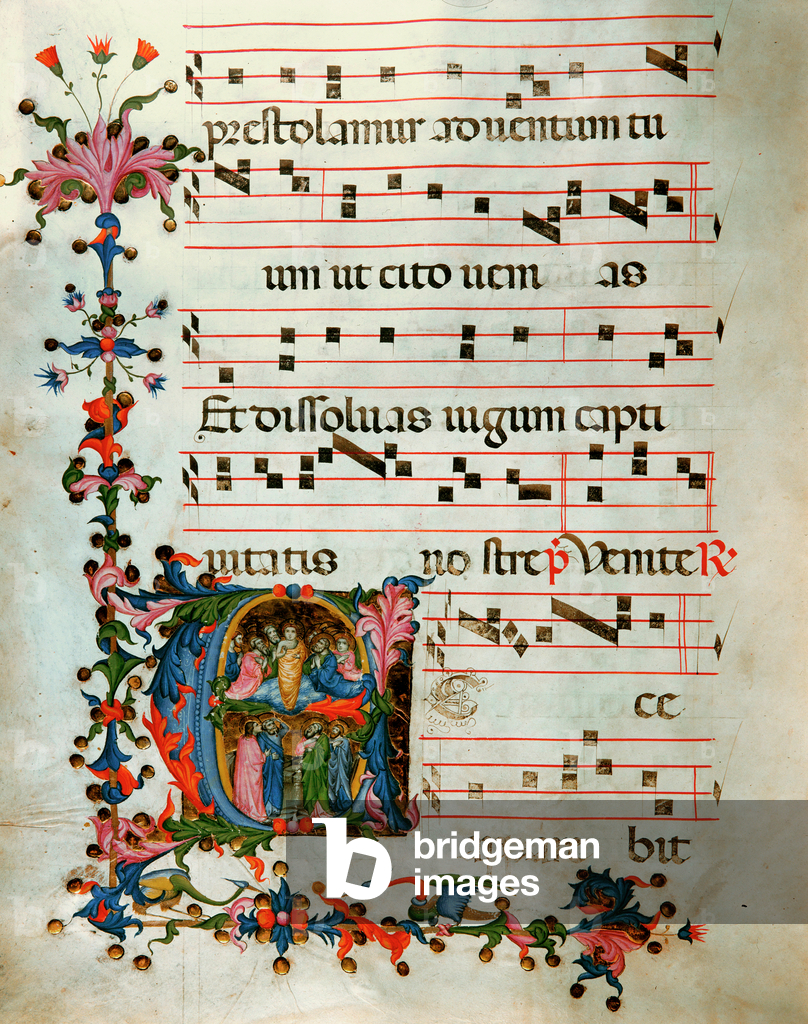 prestolamur aduentum tu
um ut cito ueni as
Et dissoluas iugum capti
uitatis no strep Venite R
E cc
bit
bridgeman
images